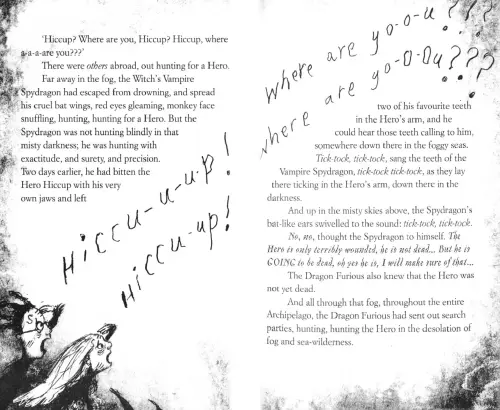 'Hiccup? Where are you, Hiccup? Hiccup, where
a-a-a-are you???'
There were others abroad, out hunting for a Hero.
Far away in the fog, the Witch's Vampire
Spydragon had escaped from drowning, and spread
his cruel bat wings, red eyes gleaming, monkey face
snuffling, hunting, hunting for a Hero. But the
Spydragon was not hunting blindly in that
misty darkness; he was hunting with
exactitude, and surety, and precision.
Two days earlier, he had bitten the
Hero Hiccup with his very
own jaws and left
HiCCU-u-u-up!
HiCCU-up!
where are yo-o-u???
where are yo-O-Ou???
two of his favourite teeth
in the Hero's arm, and he
could hear those teeth calling to him,
somewhere down there in the foggy seas.
Tick-tock, tick-tock, sang the teeth of the
Vampire Spydragon, tick-tock tick-tock, as they lay
there ticking in the Hero's arm, down there in the
darkness.
And up in the misty skies above, the Spydragon's
bat-like ears swivelled to the sound: tick-tock, tick-tock.
No, no, thought the Spydragon to himself. The
Hero is only terribly wounded, he is not dead... But he is
GOING to be dead, oh yes he is, I will make sure of that...
The Dragon Furious also knew that the Hero was
not yet dead.
And all through that fog, throughout the entire
Archipelago, the Dragon Furious had sent out search
parties, hunting, hunting the Hero in the desolation of
fog and sea-wilderness.